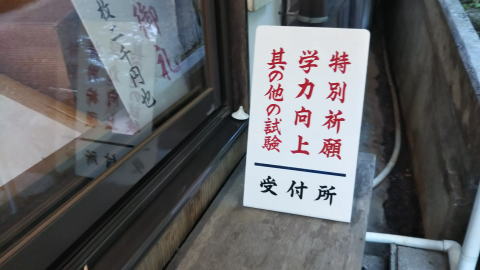 特別祈願
学力向上
其の他の試験
受付所
御札
一枚二千円也